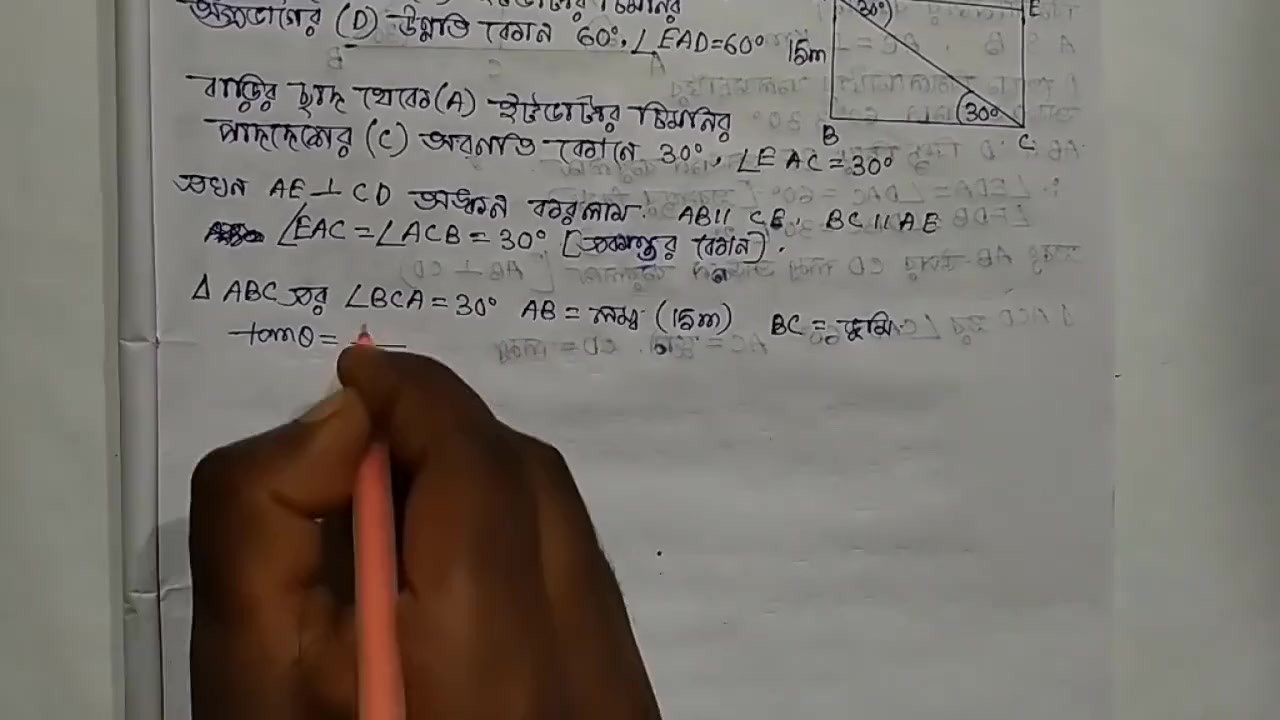 অগ্রভাগের (D) উন্নতি কোন 60°, ∠EAD=60°
বাড়ির ছাদ থেকে (A) ইটভাটার চিমনির
পাদদেশের (C) অবনতি কোনে 30°, ∠EAC=30°
এখন AE⊥CD অঙ্কন করলাম. AB॥CE, BC॥AE
∠EAC=∠ACB=30° [একান্তর কোন].
Δ ABC এর ∠BCA=30° AB= লম্ব (15m) BC= ভূমি.
tanθ=
30°
E
15m
30°
B
C